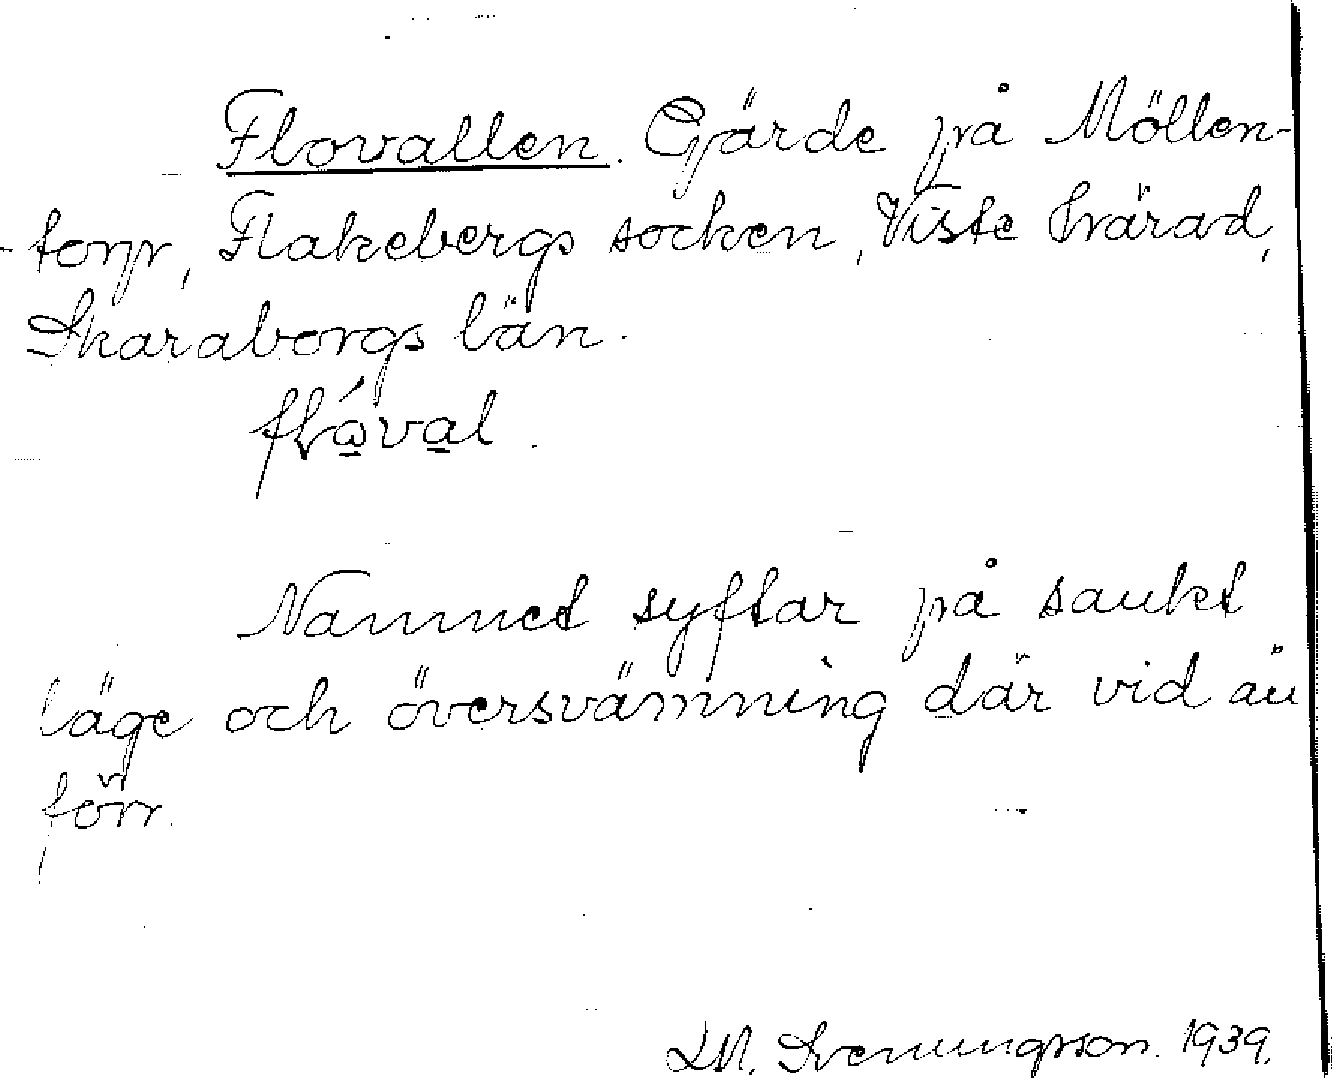 Flovallen. Gärde på Möllen-
torp, Flakebergs socken, Viste härad,
Skaraborgs län.
flóval.
Namnet syftar på sankt
läge och översvämning där vid ån
förr.
Svenungsson. 1939.